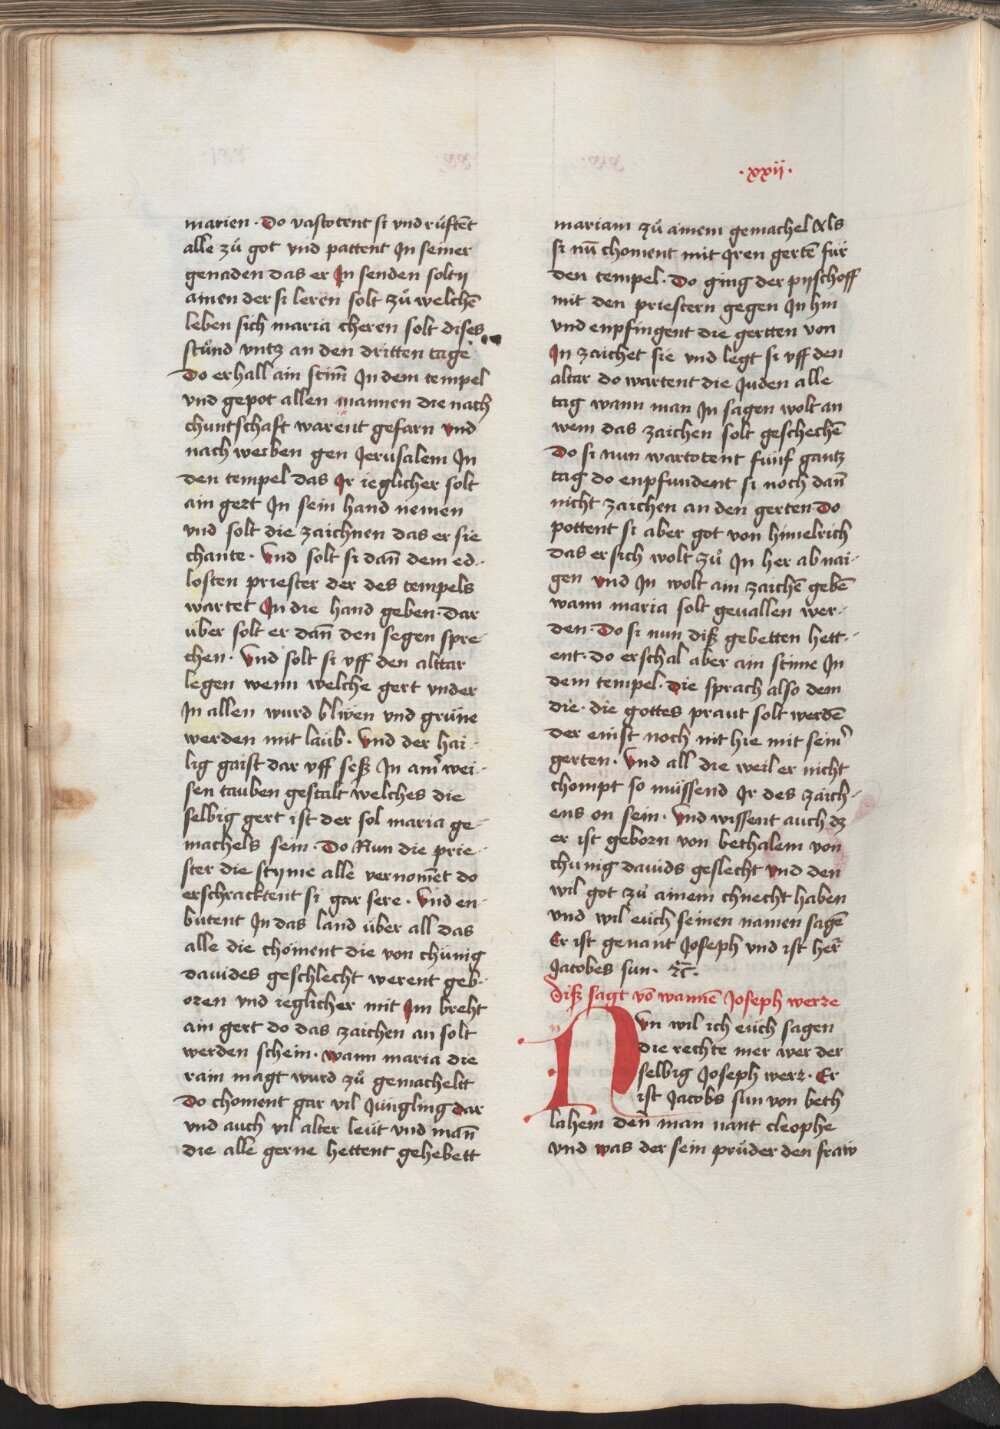 ·xxii·
marien · Do vastotent si vnd rúftēt
alle zů got vnd pattent Jn seiner
genaden das er Jn senden solty
ainen der si leren solt zů welchē
leben sich maria cheren solt dises
stůnd vntz an den dritten tage
Do erhall ain stim̄ Jn dem tempel
vnd gepot allen mannen die nach
chuntschaft warent gefarn vnd
nach weiben gen Jerusalem Jn
den tempel das Jr ieglicher solt
ain gert Jn sein hand nemen
vnd solt die zaichnen das er sie
chante · Vnd solt si dañ dem ed-
losten priester der des tempels
wartet Jn die hand geben · dar
über solt er dañ den segen spre-
chen · Vnd solt si vff den alttar
legen wenn welche gert vnder
Jn allen wurd blẅen vnd grüne
werden mit laub · Vnd der hai-
lig gaist dar vff seß Jn am̉ wei-
sen tauben gestalt welches die
selbig gert ist der sol maria ge-
machels sein · Do Nun die prie-
ster die styme alle vernomēt do
erschracktent si gar sere · Vnd en-
butent Jn das land über all das
alle die choment die von chünig
dauides geschlecht werent geb-
oren vnd ieglicher mit Jm breht
ain gert do das zaichen an solt
werden schein · wann maria die
rain magt wurd zů gemachelt
Do choment gar vil Jüngling dar
vnd auch vil alter leüt vnd mañ
die alle gerne hettent gehebett
mariam zů ainem gemachel Als
si nū choment mit Jren gertē für
den tempel · Do ging der pyschoff
mit den priestern gegen Jn hin
vnd enpfingent die gertten von
Jn zaichet sie vnd legt si vff den
altar do wartent die Juden alle
tag wann man Jn sagen wolt an
wem das zaichen solt geschechē
Do si nun wartotent fünf gantz
tag do enpfundent si noch dañ
nicht zaichen an den gerten Do
pottent si aber got von himelrich
das er sich wolt zů Jn her ab nai-
gen vnd Jn wolt ain zaichē gebē
wann maria solt geuallen wer-
den · Do si nun diß gebetten hett-
ent · do erschal aber ain stime Jn
dem tempel · die sprach also dem
die · die gottes praut solt werdē
der enist noch nit hie mit seim̉
gerten · Vnd all die weil er nicht
chompt so müssend Jr des zaich-
ens on sein · Vnd wissent auch dz
er ist geborn von bethalem von
chunig dauids geslecht vnd den
wil got zů ainem chnecht haben
vnd wil euch seinen namen sagē
Er ist genant Joseph vnd ist her̄
Jacobes sun · ꝛc̄ ·
Diß sagt vō wannē Joseph werre
Nvn wil ich euch sagen
die rechte mer wer der
selbig Joseph werr · Er
ist Jacobs sun von beth
lahem den man nant cleophe
vnd was der sein průder den fraw